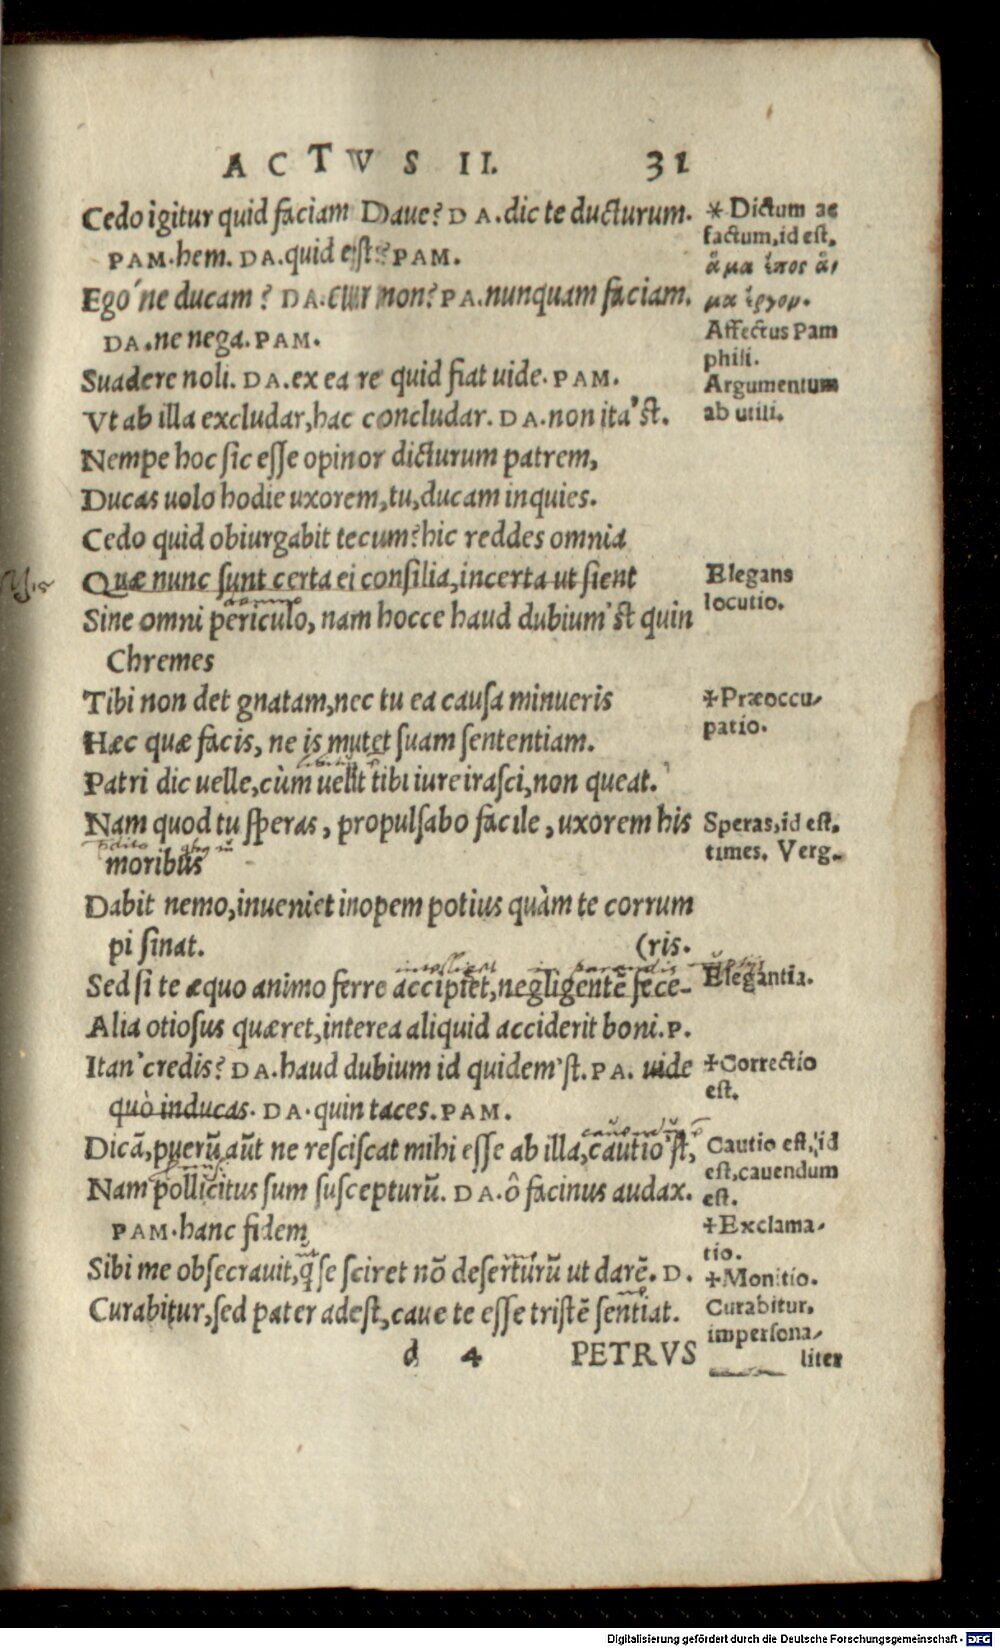 ACTVS II. 31
Cedo igitur quid faciam Daue? DA. dic te ducturum.
PAM. hem. DA. quid est? PAM.
Ego´ne ducam? DA. cur non? PA. nunquam faciam.
DA. ne nega. PAM.
Suadere noli. DA. ex ea re quid fiat uide. PAM.
Vt ab illa excludar, hac concludar. DA. non ita'st.
Nempe hoc sic esse opinor dicturum patrem,
Ducas uolo hodie uxorem, tu, ducam inquies.
Cedo quid obiurgabit tecum? hic reddes omnia
Quæ nunc sunt certa ei consilia, incerta ut sient
Sine omni periculo, nam hocce haud dubium'st quin
Chremes
Tibi non det gnatam, nec tu ea causa minueris
Hæc quæ facis, ne is mutet suam sententiam.
Patri dic uelle, cùm uelit tibi iure irasci, non queat.
Nam quod tu speras, propulsabo facile, uxorem his
moribus
Dabit nemo, inueniet inopem potius quàm te corrum
pi sinat. (ris.
Sed si te æquo animo ferre accipiet, negligentē fece-
Alia otiosus quæret, interea aliquid acciderit boni. P.
Itan' credis? DA. haud dubium id quidem'st. PA. uide
quò inducas. DA. quin taces. PAM.
Dicā, puerū aūt ne resciscat mihi esse ab illa, cautio'st,
Nam pollicitus sum suscepturū. DA. ô facinus audax.
PAM. hanc fidem
Sibi me obsecrauit, q̃ se sciret nō deserturū ut darē. D.
Curabitur, sed pater adest, caue te esse tristē sentiat.
d 4 PETRVS
* Dictum ac
factum, id est,
ἅμα ἔπος ἅ-
μα ἔργον.
Affectus Pam
phili.
Argumentum
ab utili.
Elegans
locutio.
+Præoccu-
patio.
Speras, id est,
times. Verg.
Elegantia.
+Correctio
est.
Cautio est, id
est, cauendum
est.
+Exclama-
tio.
+Monitio.
Curabitur,
impersona-
liter
intelliget in parandis nuptijs
Digitalisierung gefördert durch die Deutsche Forschungsgemeinschaft - DFG